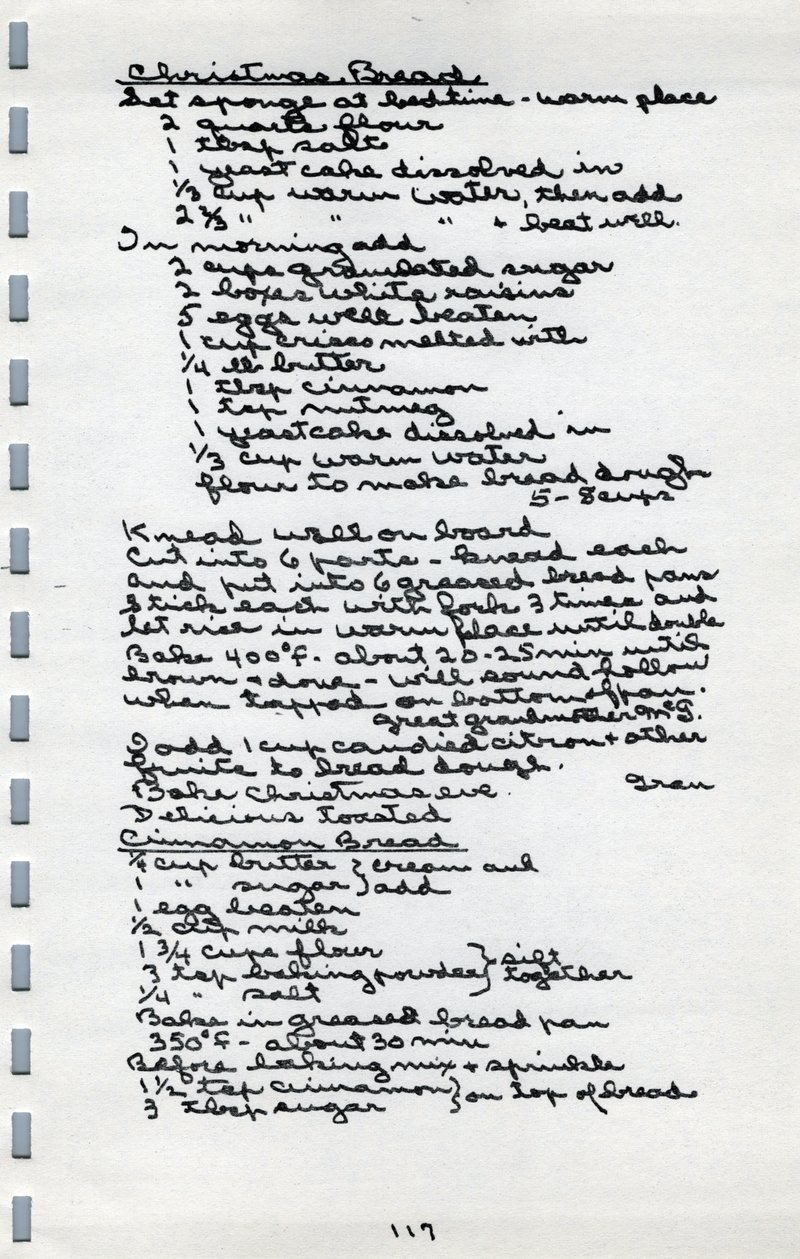 Christmas Bread
Set sponge at bedtime - warm place
2 quarts flour
1 tbsp salt
1 yeast cake dissolved in
1/3 cup warm water, then add
2 2/3 " " " + beat well.
In morning add
2 cups granulated sugar
2 boxes white raisins
5 eggs well beaten
1 cup crisco melted with
1/4 lb butter
1 tbsp cinnamon
1 tsp nutmeg
1 yeastcake dissolved in
1/3 cup warm water
flour to make bread dough
5 - 8 cups
Knead well on board
Cut into 6 parts - knead each
and put into 6 greased bread pans
Stick each with fork 3 times and
let rise in warm place until double
Bake 400°F - about 20-25 min until
brown + done - will sound hollow
when tapped on bottom of pan.
great grandmother McG.
I add 1 cup candied citron + other
fruits to bread dough.
Bake Christmas eve. Gran
Delicious toasted
Cinnamon Bread
1/4 cup butter } cream and
1 " sugar } add
1 egg beaten
1/2 cup milk
1 3/4 cups flour } sift
3 tsp baking powder } together
1/4 " salt
Bake in greased bread pan
350°F - about 30 min
Before baking mix + sprinkle
1 1/2 tsp cinnamon } on top of bread
3 tbsp sugar }
117